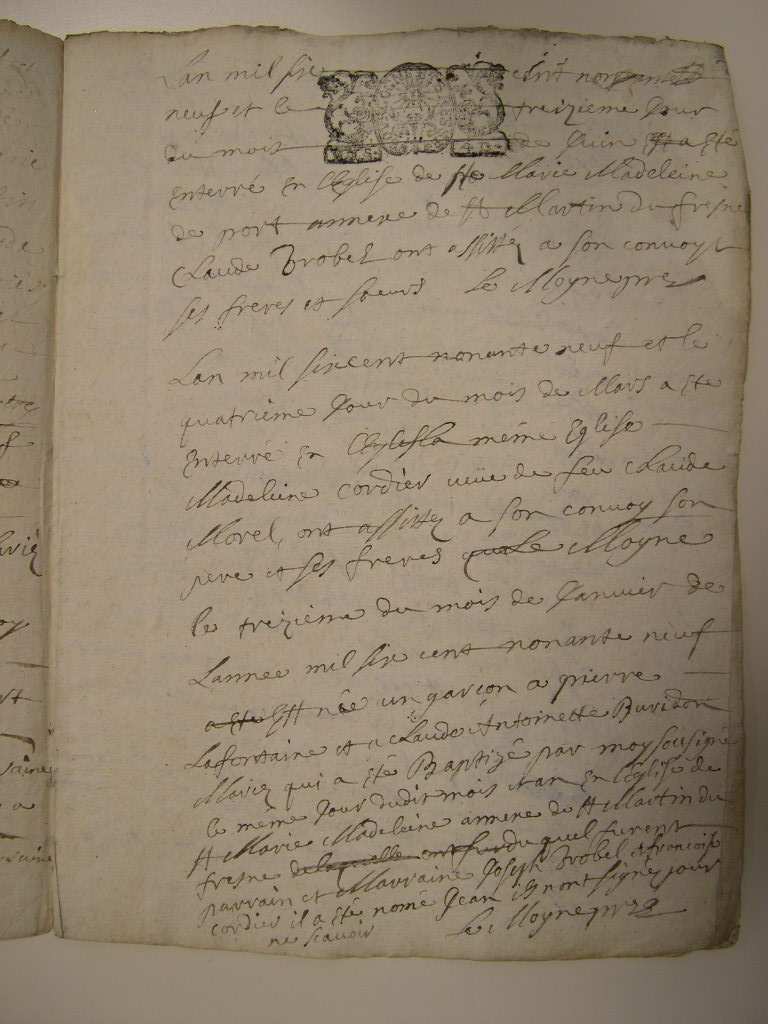 Lan mil six cent nonante
neuf et le treizieme Jour
du mois de Juin a eté
enterré en L'eglise de ste Marie Madeleine
de port annexe de st Martin du fresne
Claude Trobel ont assisté a son convoy
ses freres et soeurs Le Moyne pre
Lan mil sixcent nonante neuf et le
quatrieme Jour du mois de Mars a ete
enterré en la méme Eglise
Madeleine Cordier veüe de feu Claude
Morel, ont assistez a son convoy son
pere et ses freres Le Moyne
le treizieme du mois de Janvier de
Lannee mil six cent nonante neuf
a eté Est née un garçon a pierre
Lafontaine et a Claude Antoinette Buridon
Mariez qui a eté Baptizé par moy sousigné
le méme Jour dudit mois et an En L'eglise de
st Marie Madeleine annexe de st Martin du
fresne duquel furent
parrain et Marraine Joseph Trobel et francoise
cordier il a eté nomé Jean ils nont signé pour
ne scavoir Le Moyne pre